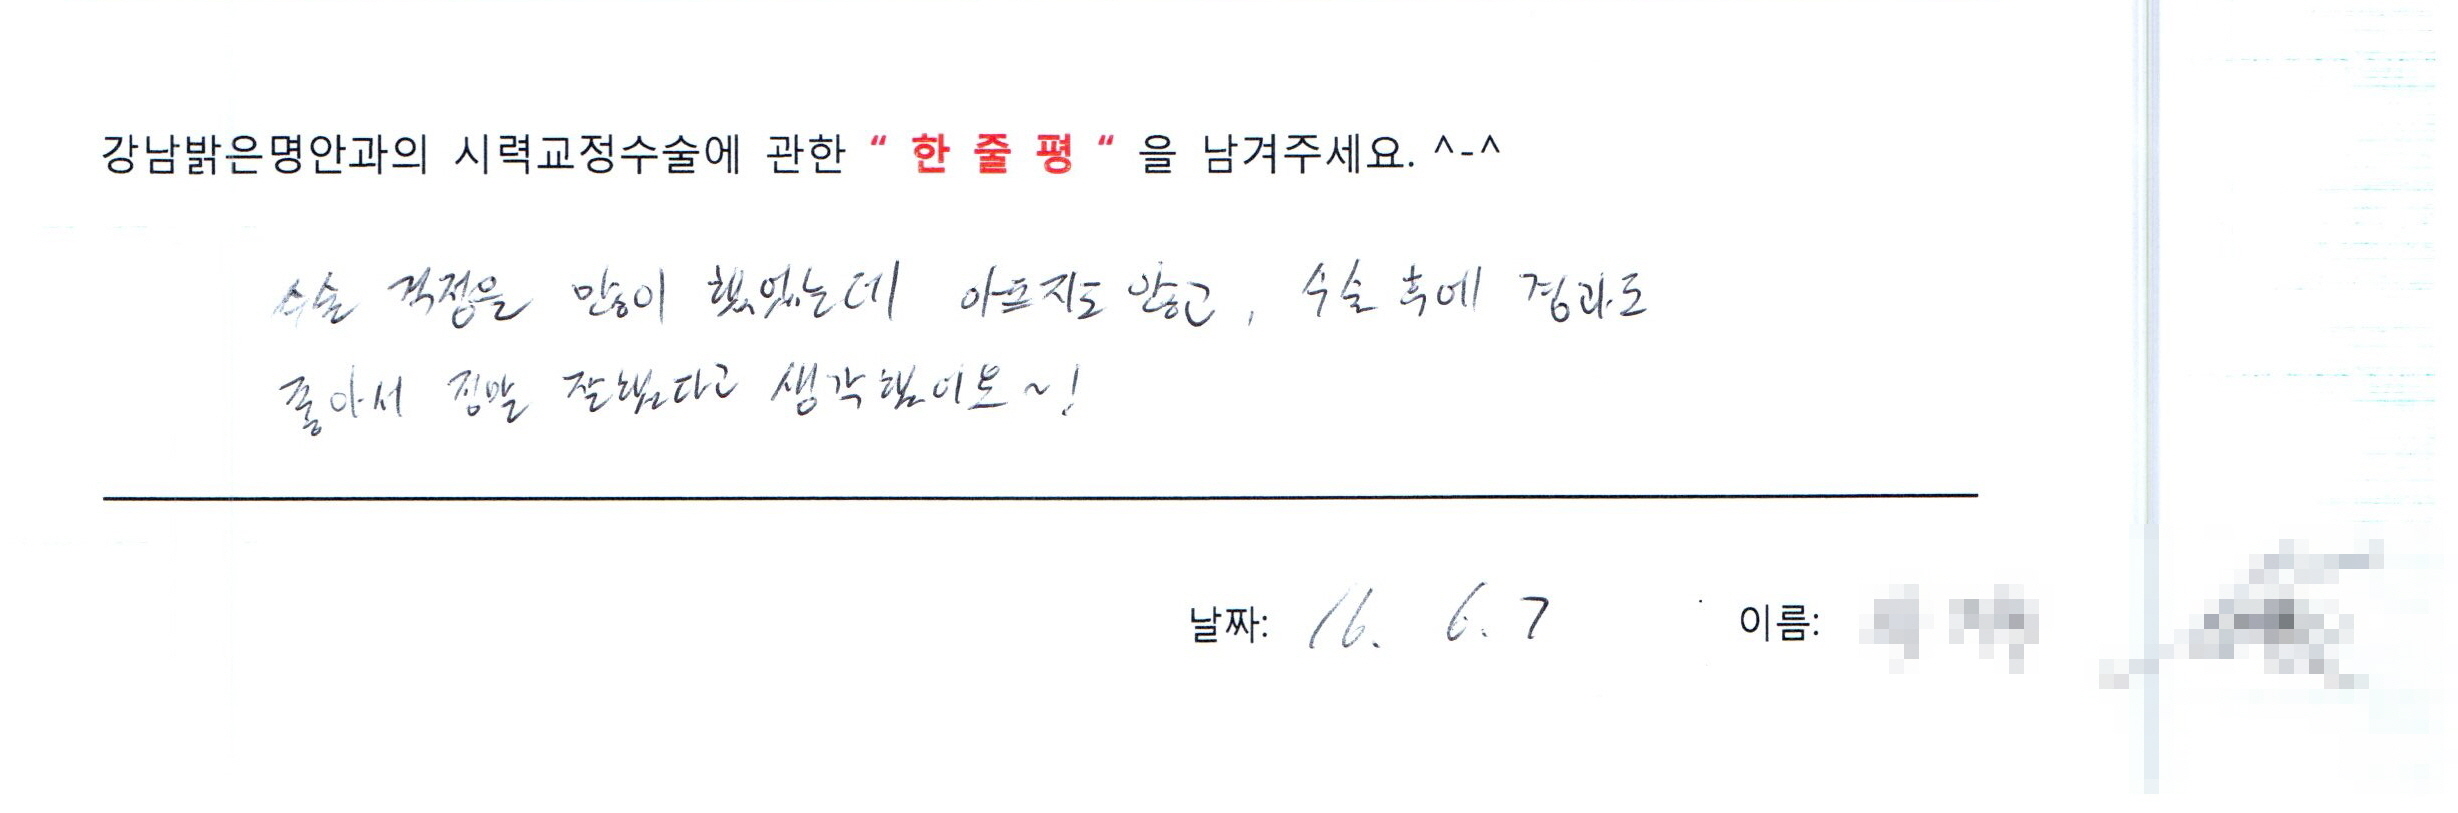 강남밝은명안과의 시력교정수술에 관한 “ 한 줄 평 “ 을 남겨주세요. ^-^
수술 걱정을 많이 했었는데 아프지도 않고, 수술 후에 경과도
좋아서 정말 잘했다고 생각했어요~!
날짜: 16. 6. 7 이름: